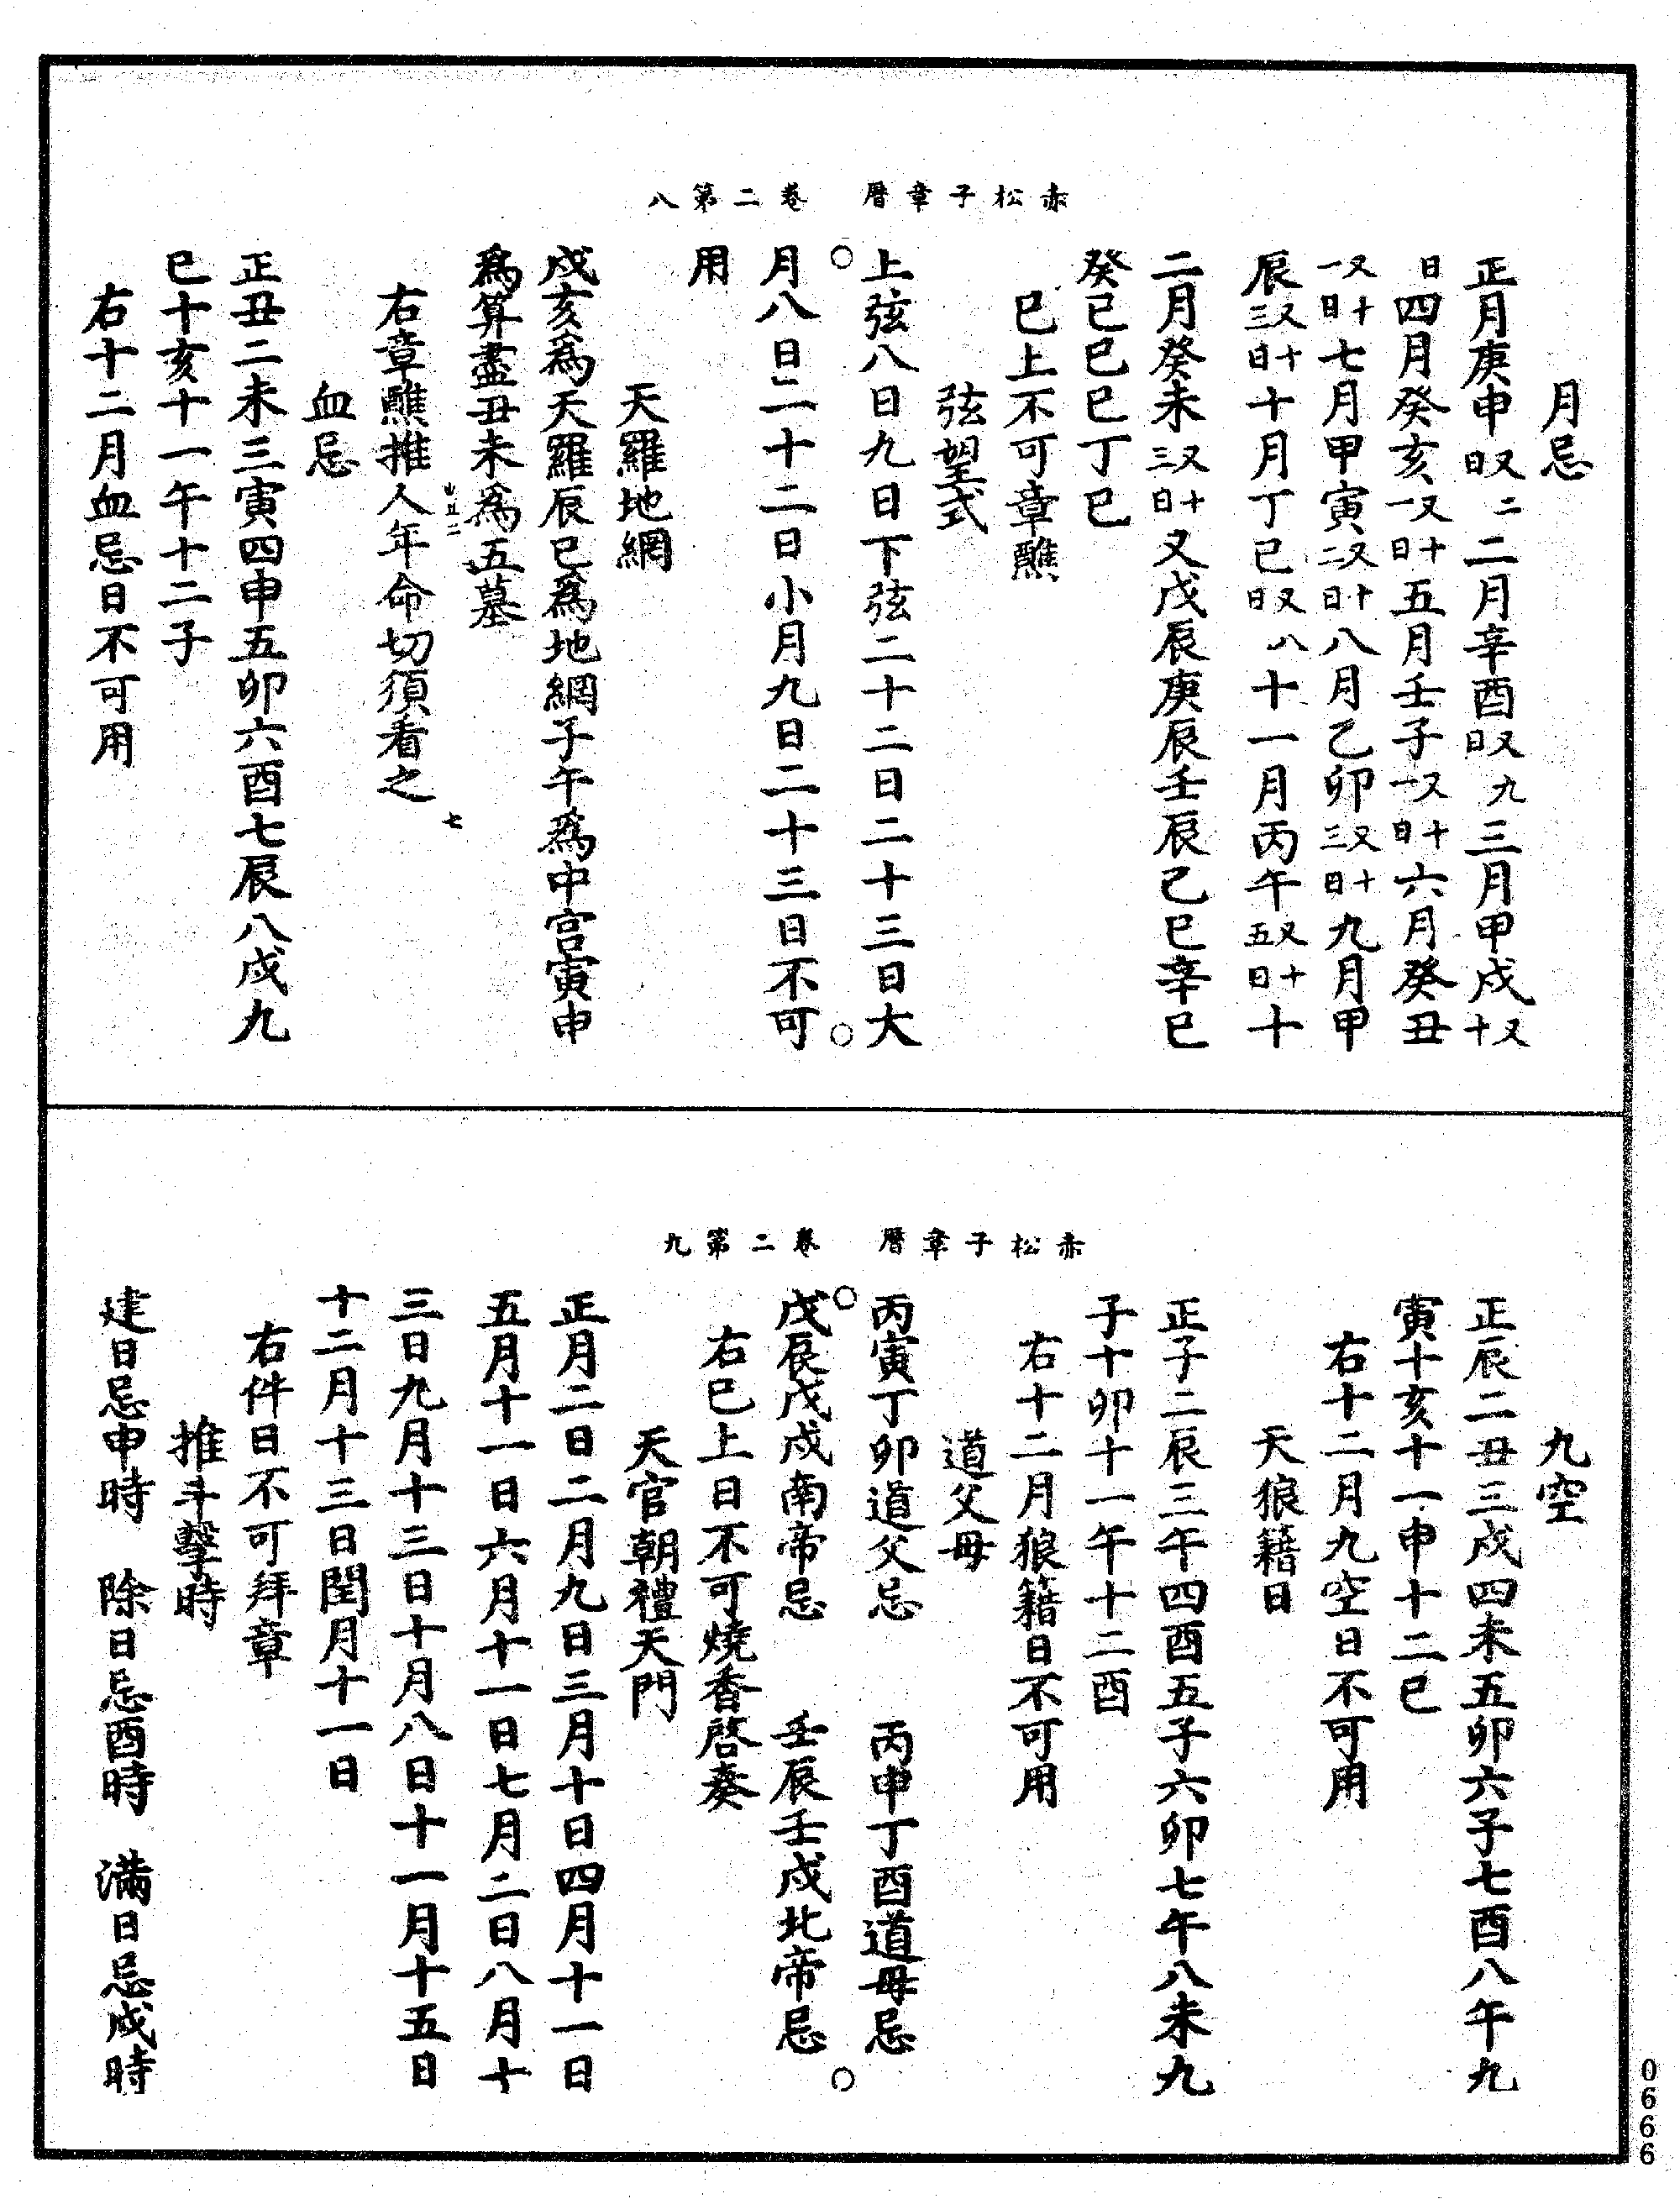 赤松子章曆　卷二第八
月忌
正月庚申又二日二月辛酉又九日三月甲戌又十
日四月癸亥又十一日五月壬子又十一日六月癸丑
又十一日七月甲寅又十二日八月乙卯又十三日九月甲
辰又十三日十月丁巳又八日十一月丙午又十五日十
二月癸未又十三日又戊辰庚辰壬辰己巳辛巳
癸巳巳巳丁巳
已上不可章醮
弦望式
上弦八日九日下弦二十二日二十三日大
月八日二十二日小月九日二十三日不可
用
天羅地網
戌亥為天羅辰巳為地網子午為中宮寅申
為算盡丑未為五墓
右章醮推人年命切須看之
血忌
正丑二未三寅四申五卯六酉七辰八戌九
巳十亥十一午十二子
右十二月血忌日不可用
赤松子章曆　卷二第九
九空
正辰二丑三戌四未五卯六子七酉八午九
寅十亥十一申十二巳
右十二月九空日不可用
天狼籍日
正子二辰三午四酉五子六卯七午八未九
子十卯十一午十二酉
右十二月狼籍日不可用
道父母
丙寅丁卯道父忌　丙申丁酉道母忌
戊辰戊戌南帝忌　壬辰壬戌北帝忌
右已上日不可燒香啓奏
天官朝禮天門
正月二日二月九日三月十日四月十一日
五月十一日六月十一日七月二日八月十
三日九月十三日十月八日十一月十五日
十二月十三日閏月十一日
右件日不可拜章
推斗擊時
建日忌申時　除日忌酉時　滿日忌戌時
0666